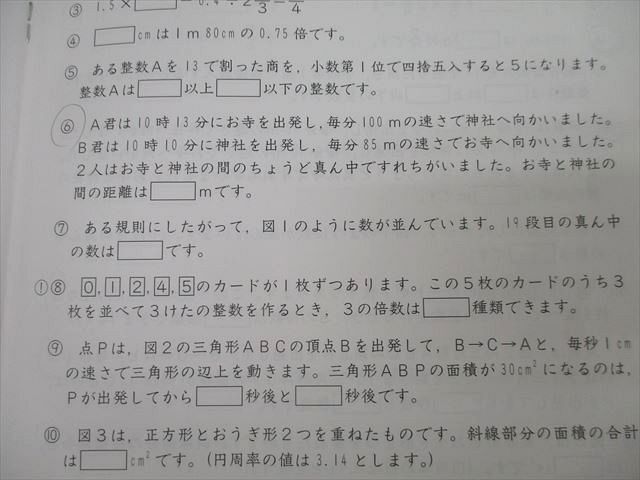 ③ 1.5×□−0.4÷2 2/3=1/4
④ □cmは1m80cmの0.75倍です。
⑤ ある整数Aを13で割った商を,小数第1位で四捨五入すると5になります。
整数Aは□以上□以下の整数です。
⑥ A君は10時13分にお寺を出発し,毎分100mの速さで神社へ向かいました。
B君は10時10分に神社を出発し,毎分85mの速さでお寺へ向かいました。
2人はお寺と神社の間のちょうど真ん中ですれちがいました。お寺と神社の
間の距離は□mです。
⑦ ある規則にしたがって,図1のように数が並んでいます。19段目の真ん中
の数は□です。
①⑧ 0,1,2,4,5のカードが1枚ずつあります。この5枚のカードのうち3
枚を並べて3けたの整数を作るとき,3の倍数は□種類できます。
⑨ 点Pは,図2の三角形ABCの頂点Bを出発して,B→C→Aと,毎秒1cm
の速さで三角形の辺上を動きます。三角形ABPの面積が30cm²になるのは,
Pが出発してから□秒後と□秒後です。
⑩ 図3は,正方形とおうぎ形2つを重ねたものです。斜線部分の面積の合計
は□cm²です。(円周率の値は3.14とします。)